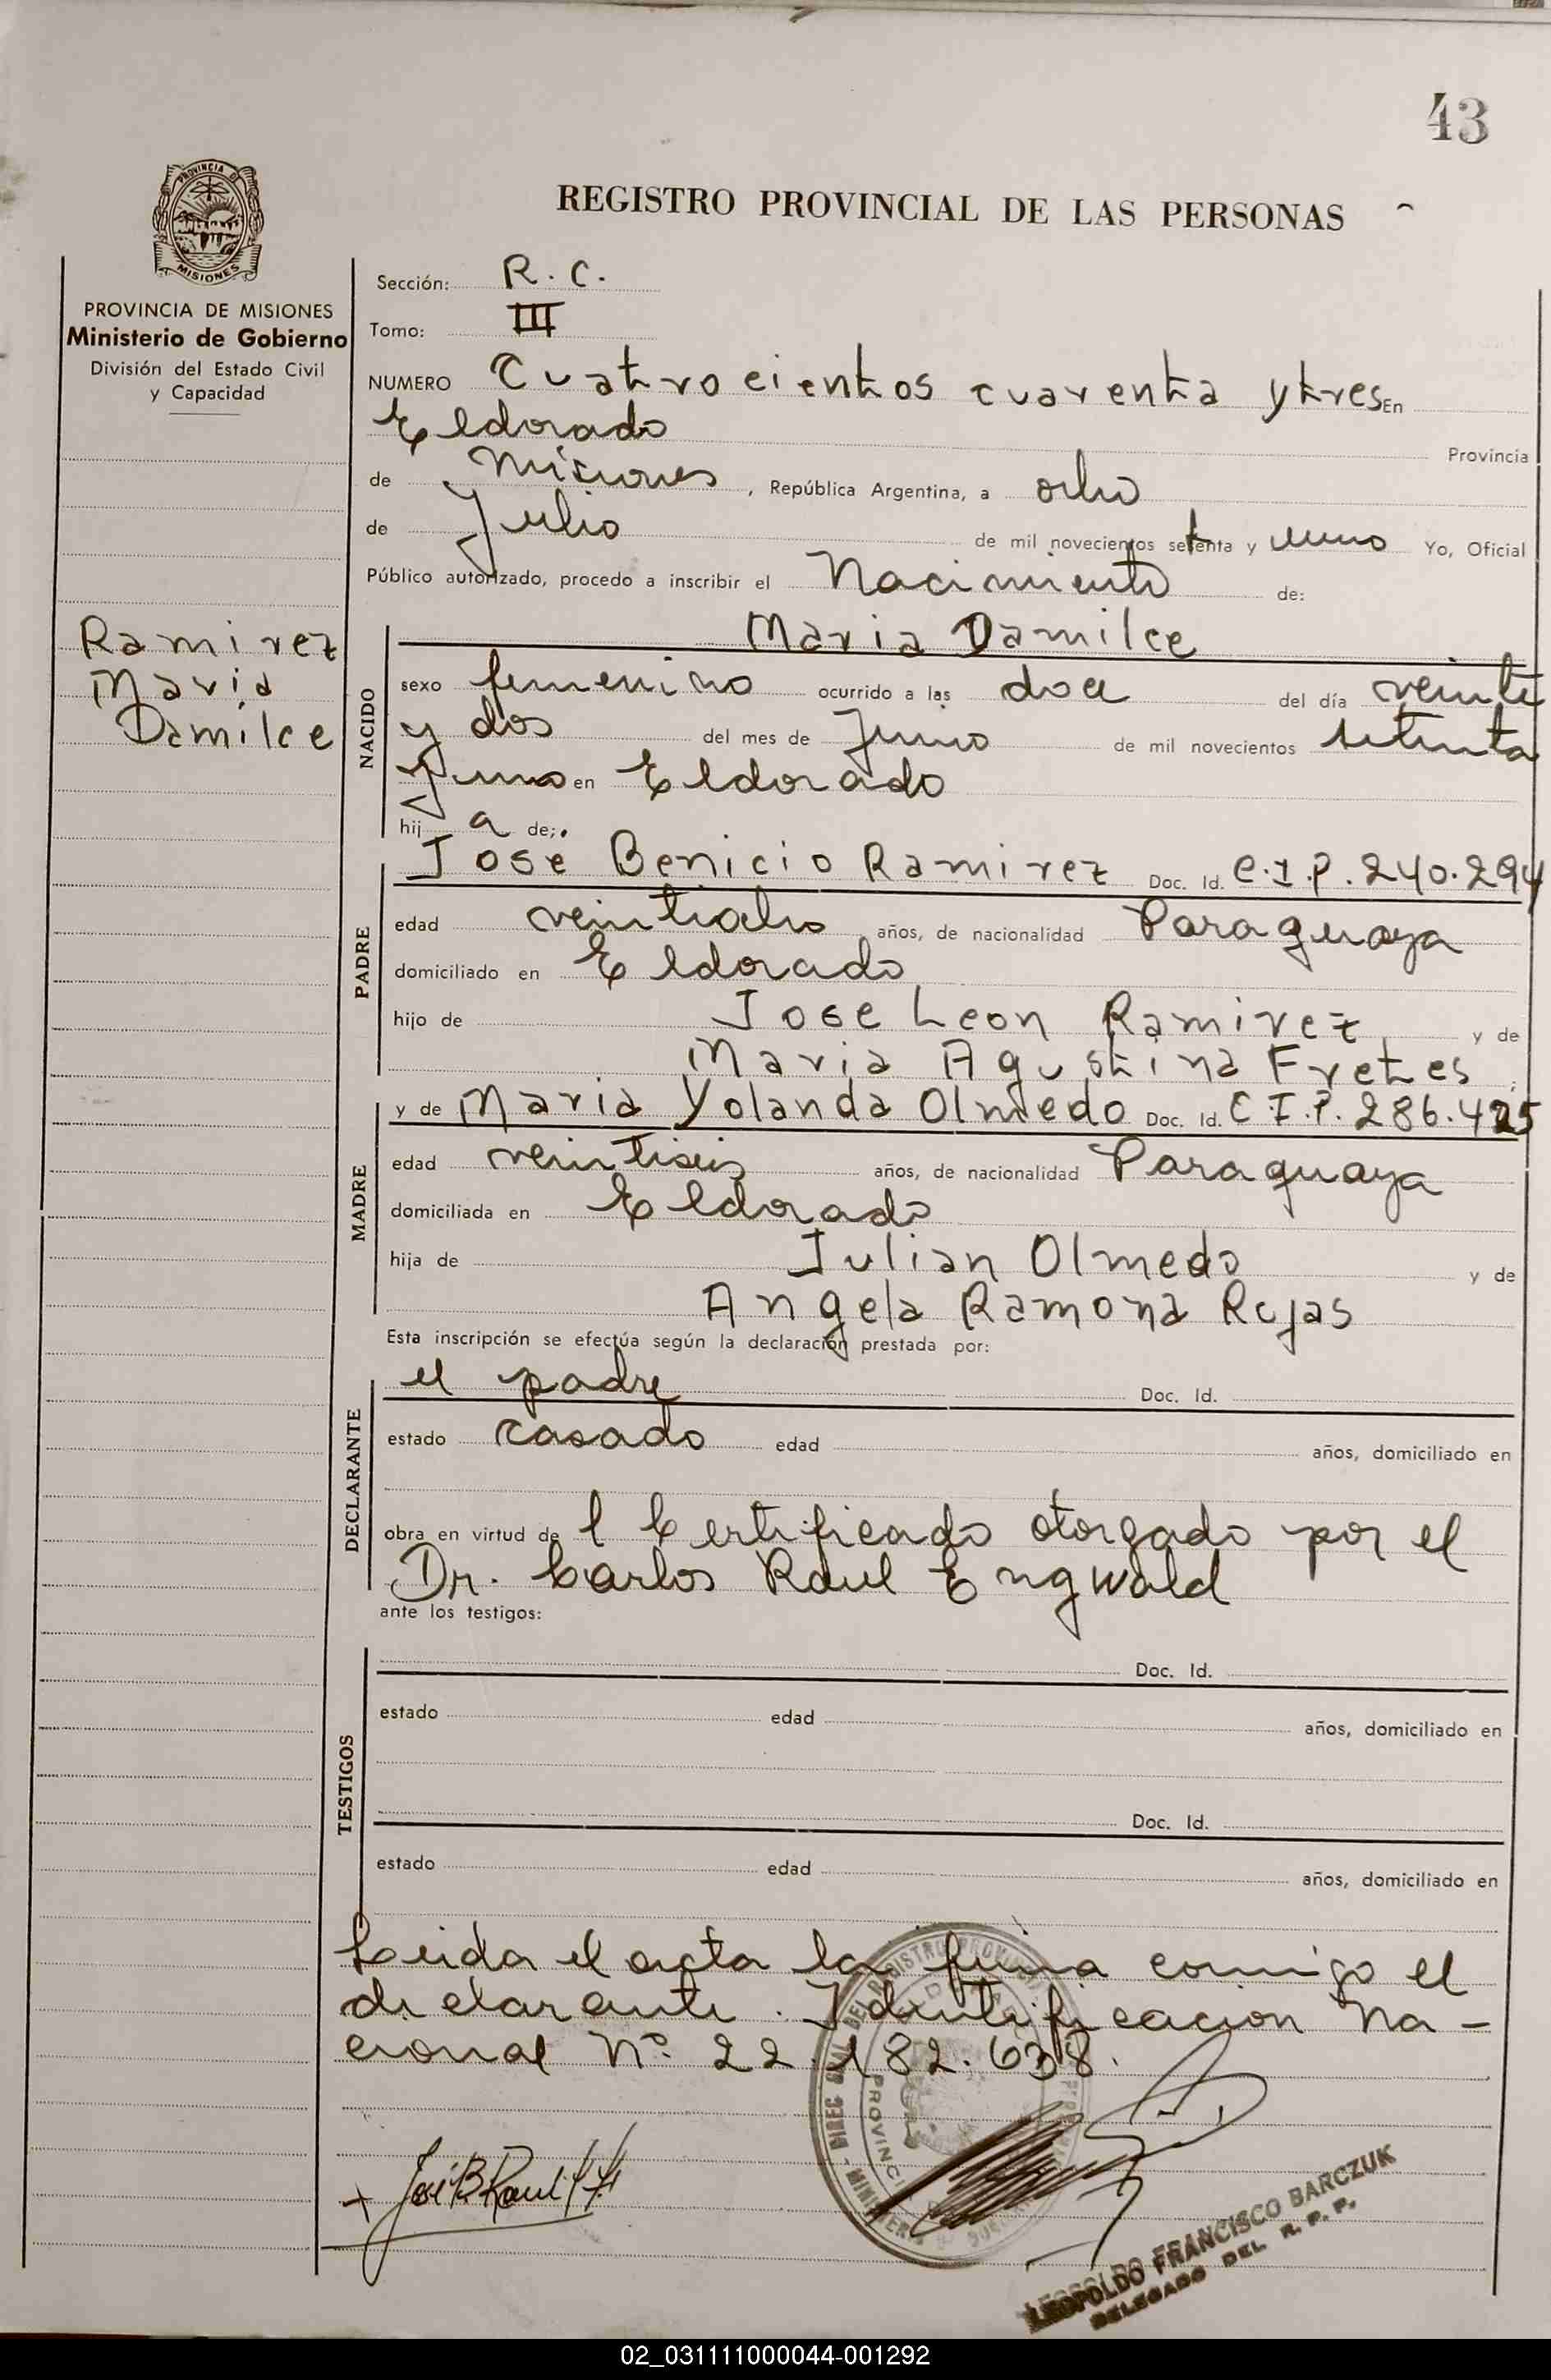 43
REGISTRO PROVINCIAL DE LAS PERSONAS
PROVINCIA DE MISIONES
Ministerio de Gobierno
División del Estado Civil
y Capacidad
Ramirez
Maria
Damilce
Sección: R. C.
Tomo: III
NUMERO Cuatrocientos cuarenta y tres En
Eldorado Provincia
de Misiones, República Argentina, a ocho
de Julio de mil novecientos setenta y uno Yo, Oficial
Público autorizado, procedo a inscribir el Nacimiento de:
Maria Damilce
NACIDO
sexo femenino ocurrido a las doce del día veinte
y dos del mes de Junio de mil novecientos setenta
y uno en Eldorado
hij a de;
PADRE
Jose Benicio Ramirez Doc. Id. C.I.P. 240.294
edad veintiocho años, de nacionalidad Paraguaya
domiciliado en Eldorado
hijo de Jose Leon Ramirez y de
Maria Agustina Fretes
MADRE
y de Maria Yolanda Olmedo Doc. Id. C.I.P. 286.425
edad veintiseis años, de nacionalidad Paraguaya
domiciliada en Eldorado
hija de Julian Olmedo y de
Angela Ramona Rojas
Esta inscripción se efectúa según la declaración prestada por:
DECLARANTE
el padre Doc. Id.
estado casado edad años, domiciliado en
obra en virtud de l Certificado otorgado por el
Dr. Carlos Raul Engwald
ante los testigos:
TESTIGOS
Doc. Id.
estado edad años, domiciliado en
Doc. Id.
estado edad años, domiciliado en
Leida el acta la firma conmigo el
declarante. Identificacion Na-
cional Nº 22.182.638.
LEOPOLDO FRANCISCO BARCZUK
DELEGADO DEL R. P. P.
02_031111000044-001292